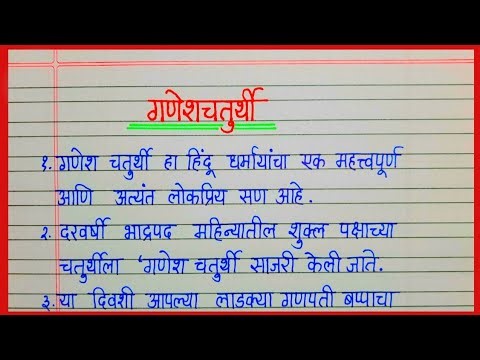 गणेशचतुर्थी
१. गणेश चतुर्थी हा हिंदू धर्मायांचा एक महत्त्वपूर्ण
आणि अत्यंत लोकप्रिय सण आहे.
२. दरवर्षी भाद्रपद महिन्यातील शुक्ल पक्षाच्या
चतुर्थीला 'गणेश चतुर्थी साजरी केली जाते.
३. या दिवशी आपल्या लाडक्या गणपती बप्पाचा